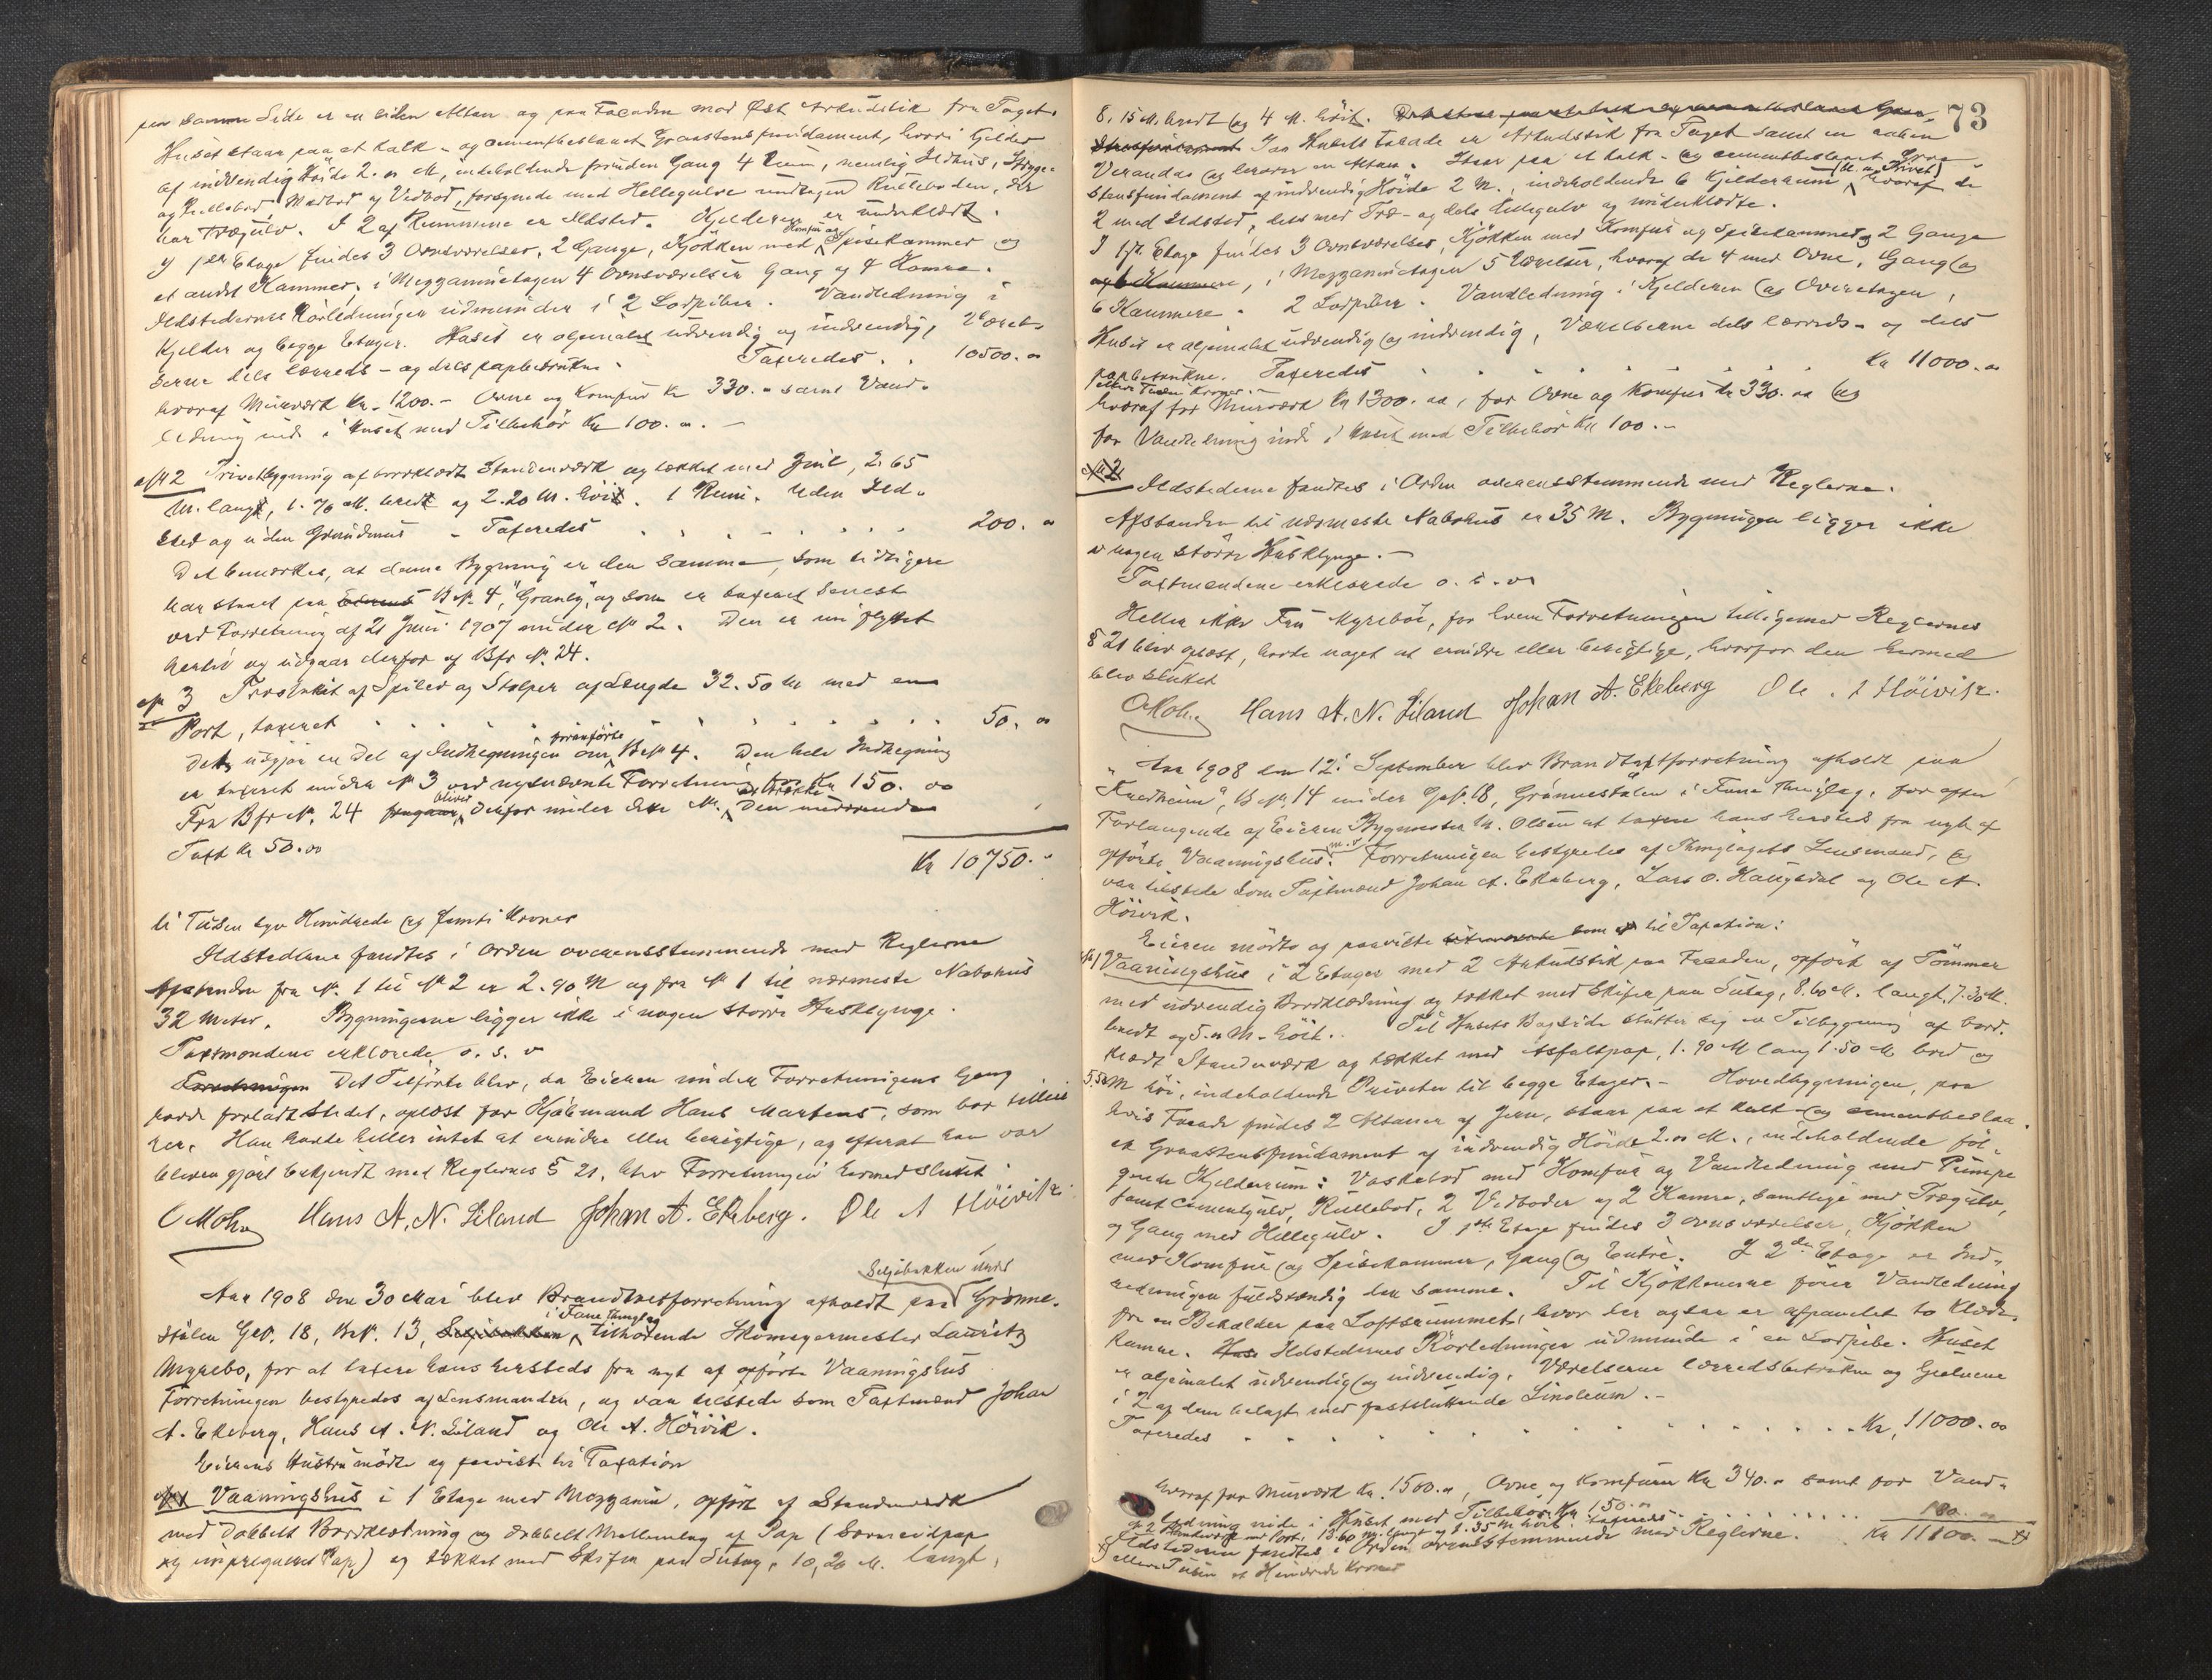 paa samme Side er en liden Altan og paa Facaden mod Øst Arkudstik fra Taget.
Huset staar paa et kalk- og cementbeslaaet Graastensfundament, hvori Kjelder
af indvendig Høide 2.00 M, indeholdende foruden Gang 4 Rum, nemlig Ildhus, Stryge-
og Rullebod, Madbod og Vedbod, forsynede med Hellegulve undtagen Rulleboden, der
har Trægulv. I 2 af Rummene er Ildsted. Kjelderen er underklædt.
I 1ste Etage findes 3 Ovnsværelser, 2 Gange, Kjøkken med Komfur og Spisekammer og
et andet Kammer, i Mezzaninetagen 4 Ovnsværelser Gang og 4 Kamre.
Ildstedernes Rørledninger udmunder i 2 Lodpiber. Vandledning i
Kjelder og begge Etager. Huset er oljemalet udvendig og indvendig, Værel-
serne dels lærreds- og dels papbetrukne. Taxeredes . . 10500.00
hvoraf Murværk Kr. 1200.- Ovne og Komfur Kr 330.00 samt Vand-
ledning inde i Huset med Tilbehør Kr 100.00.-
No 2 Privetbygning af bordklædt Stænderværk og tækket med Zink, 2.65
M. langt, 1.70 M. bredt og 2.20 M. høit. 1 Rum. Uden Ild-
sted og uden Grundmur - Taxeredes . . . . . . 200.00
Det bemærkes, at denne Bygning er den samme, som tidligere
har staaet paa B No. 4, "Granly", og som er taxeret senest
ved Forretning af 21 Juni 1907 under No 2. Den er nu flyttet
hertil og udgaar derfor af Bfr No. 24.
No 3 Træstakit af Spiler og Stolper af Længde 32.50 M med en
Port, taxeret . . . . . . . . . . 50.00
Dette udgjør en Del af Indhegningen om foranførte B No 4. Den hele Indhegning
er taxeret under No 3 ved nysnævnte Forretning for Kr 150.00
Fra Bfr No. 24 bliver derfor under dette No. at trække den nuværende
Taxt Kr 50.00
Kr 10750.00
ti Tusen syv Hundrede og femti Kroner
Ildstederne fandtes i Orden overensstemmende med Reglerne
Afstanden fra No. 1 til No 2 er 2.90 M og fra No 1 til nærmeste Nabohus
32 Meter. Bygningerne ligger ikke i nogen større Husklynge.
Taxtmændene erklærede o. s. v
Forretningen Det Tilførte blev, da Eieren under Forretningens Gang
havde forladt Stedet, oplæst for Kjøbmand Hans Martens, som bor tilleie
her. Han havde heller intet at erindre eller berigtige, og efterat han var
bleven gjort bekjendt med Reglernes § 21, blev Forretningen hermed sluttet.
O Mohn Hans A. N. Liland Johan A. Ekeberg. Ole A Høivik
Seljebakken under
Aar 1908 den 30 Mai blev Brandtaxtforretning afholdt paa Grønne-
stølen GNo. 18, BNo. 13, Seljebakken i Fane Thinglag tilhørende Skomagermester Lauritz
Myrebø, for at taxere hans hersteds fra nyt af opførte Vaaningshus
Forretningen bestyredes af Lensmanden, og var tilstede som Taxtmænd Johan
A. Ekeberg, Hans A. N. Liland og Ole A. Høivik.
Eierens Hustru mødte og paaviste til Taxation
No 1 Vaaningshus i 1 Etage med Mezzanin, opført af Stænderværk
med dobbelt Bordklædning og dobbelt Mellemlag af Pap
og imprægneret Pap) og tækket med Skifer paa Sutag, 10,20 M. langt,
73
8.15 M. bredt og 4 M. høit.
Paa Husets Facade er Arkudstik fra Taget samt en aaben
Veranda og herover en Altan. Staar paa et kalk- og cementbeslaaet Graa-
stensfundament af indvendig Høide 2 M., indeholdende 6 Kjelderrum (bl. a. Privet) hvoraf de
2 med Ildsted, dels med Træ- og dels Hellegulv og underklædte.
I 1ste Etage findes 3 Ovnsværelser, Kjøkken med Komfur og Spisekammer og 2 Gange
og 6 Kammere, i Mezzaninetagen 5 Værelser, hvoraf de 4 med Ovne, Gang og
6 Kammere. 2 Lodpiber. Vandledning i Kjelderen og Overetagen,
Huset er oljemalet udvendig og indvendig, Værelserne dels lærreds- og dels
papbetrukne. Taxeredes . . . . . . . Kr 11000.00
elleve Tusen Kroner.-
hvoraf for Murværk Kr 1300.00, for Ovne og Komfur Kr 330.00 og
for Vandledning inde i Huset med Tilbehør Kr 100.-
No 2
Ildstederne fandtes i Orden overensstemmende med Reglerne.
Afstanden til nærmeste Nabohus er 35 M. Bygningen ligger ikke
i nogen større Husklynge.-
Taxtmændene erklærede o. s. v
Heller ikke Fru Myrebø, for hvem Forretningen tilligemed Reglernes
§ 21 blev oplæst, havde noget at erindre eller berigtige, hvorfor den hermed
blev sluttet
O Mohn Hans A. N. Liland Johan A. Ekeberg Ole A Høivik.
Aar 1908 den 12. September blev Brandtaxtforretning afholdt paa
"Fredheim", B No. 14 under G No. 18, Grønnestølen i Fane Thinglag, for efter
Forlangende af Eieren Bygmester M. Olsen at taxere hans hersteds fra nyt af
opførte Vaaningshus m. v. Forretningen bestyredes af Thinglagets Lensmand, og
var tilstede som Taxtmænd Johan A. Ekeberg, Lars O. Haugsdal og Ole A.
Høivik.
Eieren mødte og paaviste som til Taxation:
No 1 Vaaningshus i 2 Etager med 2 Arkudstik paa Facaden, opført af Tømmer
med udvendig Bordklædning og tækket med Skifer paa Sutag, 8.60 M. langt, 7.30 M.
bredt og 5.00 M. høit. Til Husets Bagside støtter sig en Tilbygning af bord-
klædt Stænderværk og tækket med Asfaltpap, 1.90 M lang 1.50 M bred og
5.50 M høi, indeholdende Priveter til begge Etager.- Hovedbygningen, paa
hvis Facade findes 2 Altaner af Jern, staar paa et kalk- og cementbeslaa-
et Graastensfundament af indvendig Høide 2.00 M., indeholdende føl-
gende Kjelderrum: Vaskebod med Komfur og Vandledning med Pumpe
samt Cementgulv, Rullebod, 2 Vedboder og 2 Kamre, samtlige med Trægulv,
og Gang med Hellegulv. I 1ste Etage findes 3 Ovnsværelser, Kjøkken
med Komfur og Spisekammer, Gang og Entré. I 2den Etage er Ind-
redningen fuldstændig den samme. Til Kjøkkenerne fører Vandledning
fra en Beholder paa Loftsrummet, hvor der ogsaa er afpanelet to Klæde-
kamre. Huse Ildstedernes Rørledninger udmunde i en Lodpibe. Huset
er oljemalet udvendig og indvendig, Værelserne lærredsbetrukne og Gulvene
i 2 af dem belagt med fastsluttende Linoleum.-
Taxeredes . . . . . . . . . . Kr. 11000.00
hvoraf for Murværk Kr. 1500.00, Ovne og Komfurer Kr 340.00 samt for Vand-
ledning inde i Huset med Tilbehør Kr 150.00
No 2 med Port, 13.60 M. langt og 1.35 M høit. taxeres . . . . . 100.00
Ildstederne fandtes i Orden overensstemmende med Reglerne. Kr 11100.00
elleve Tusen et Hundrede Kroner